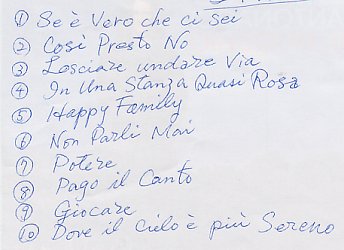 ① Se è Vero che ci sei
② Così Presto No
③ Lasciare undare Via
④ In Una Stanza Quasi Rosa
⑤ Happy Family
⑥ Non Parli Mai
⑦ Potere
⑧ Pago il Conto
⑨ Giocare
⑩ Dove il cielo è più Sereno